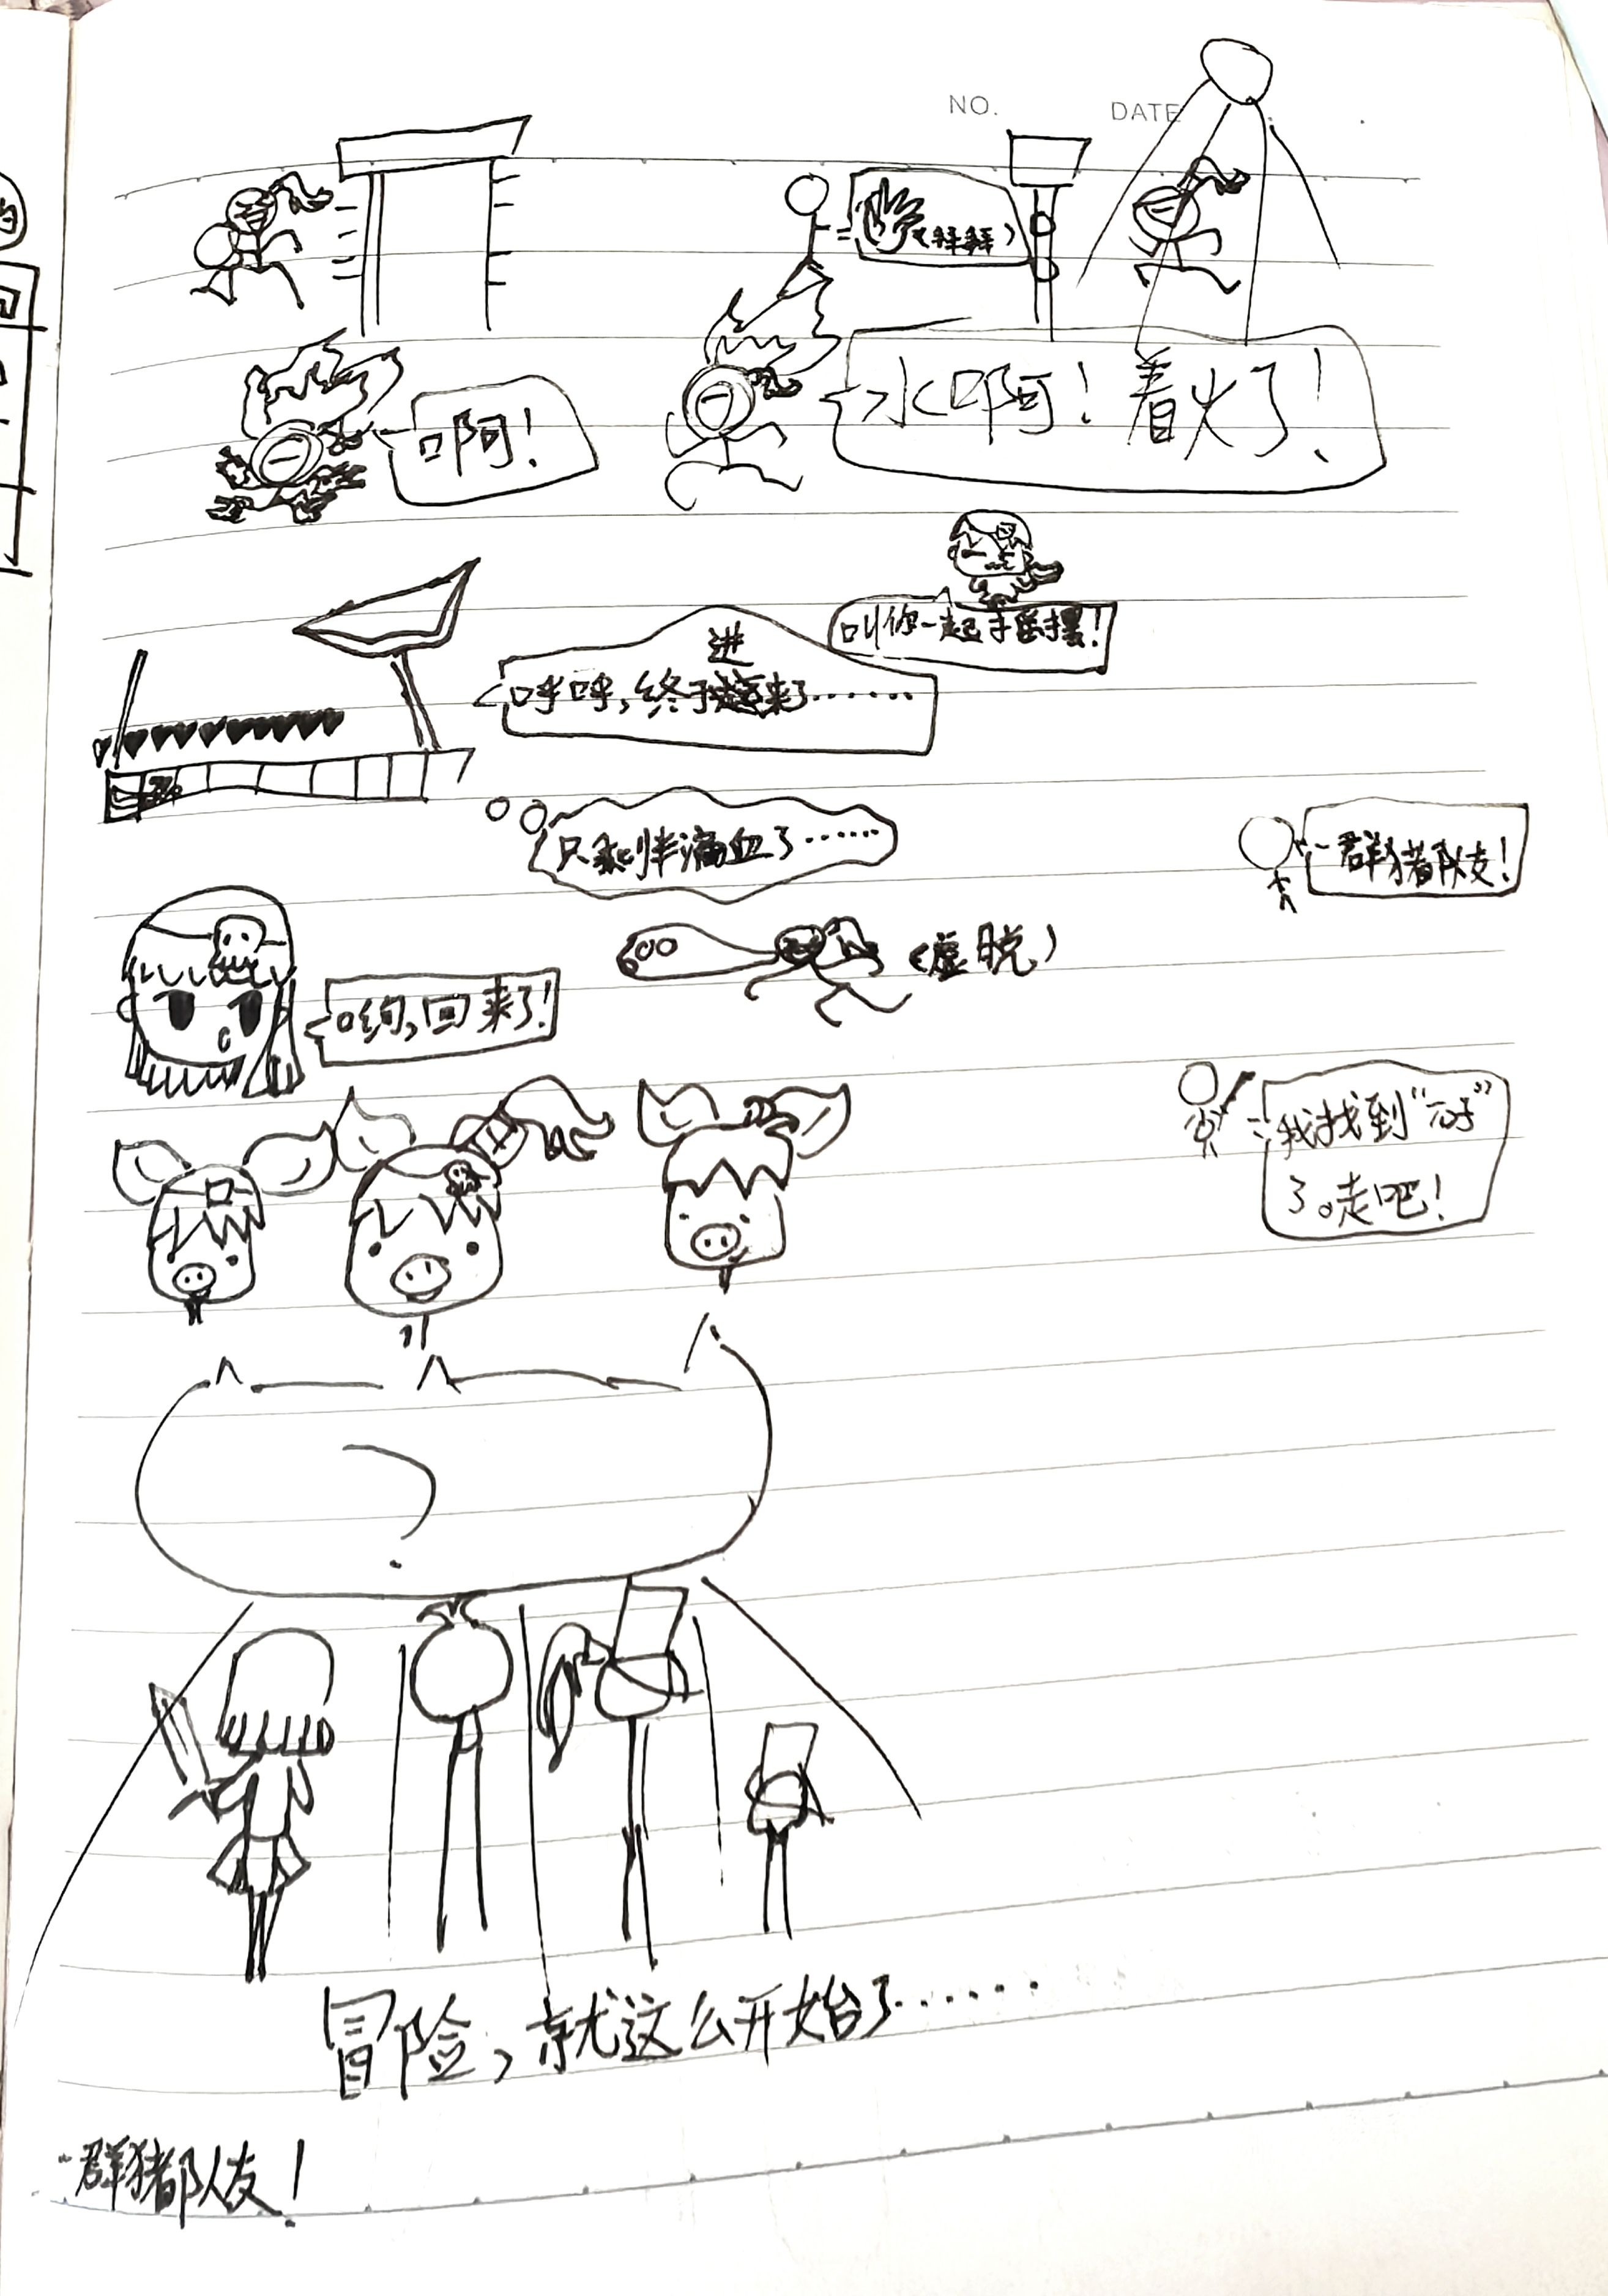 NO.
DATE
(拜拜)
啊!
水啊!着火了!
叫你一起
进
呼呼,终于来了……
只剩半滴血了……
一群猪队友!
(虚脱)
哟,回来了!
我找到“
了。走吧!
?
冒险,就这么开始了……
一群猪队友!